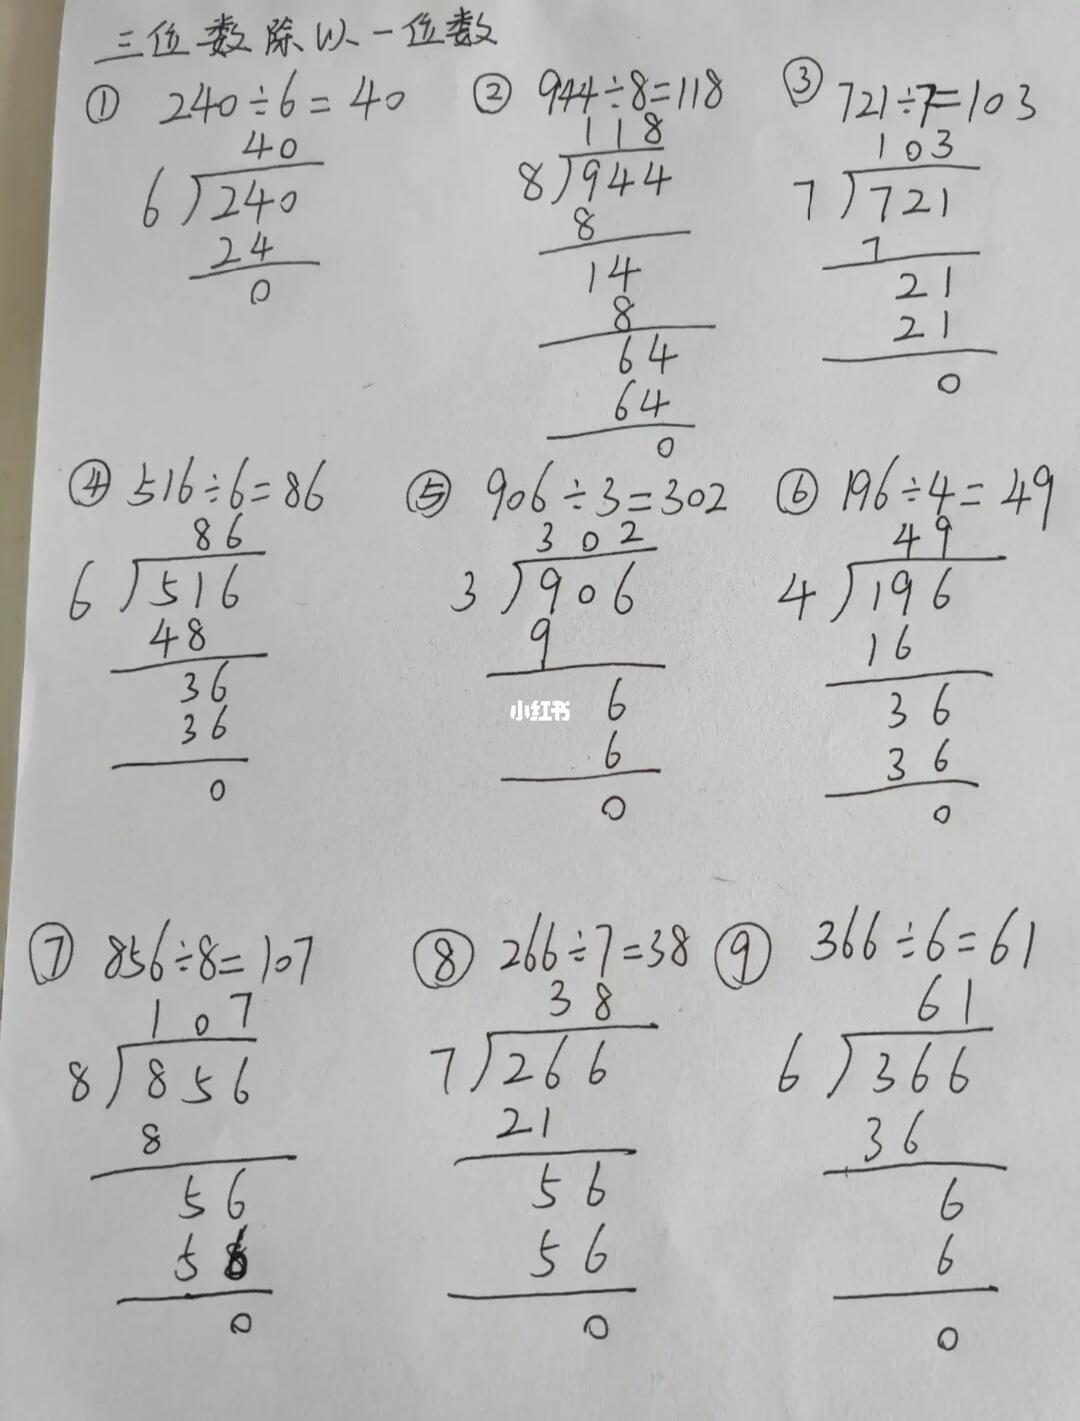 三位数除以一位数
① 240÷6=40
40
6)240
24
0
② 944÷8=118
118
8)944
8
14
8
64
64
0
③ 721÷7=103
103
7)721
7
21
21
0
④ 516÷6=86
86
6)516
48
36
36
0
⑤ 906÷3=302
302
3)906
9
6
6
0
⑥ 196÷4=49
49
4)196
16
36
36
0
小红书
⑦ 856÷8=107
107
8)856
8
56
56
0
⑧ 266÷7=38
38
7)266
21
56
56
0
⑨ 366÷6=61
61
6)366
36
6
6
0